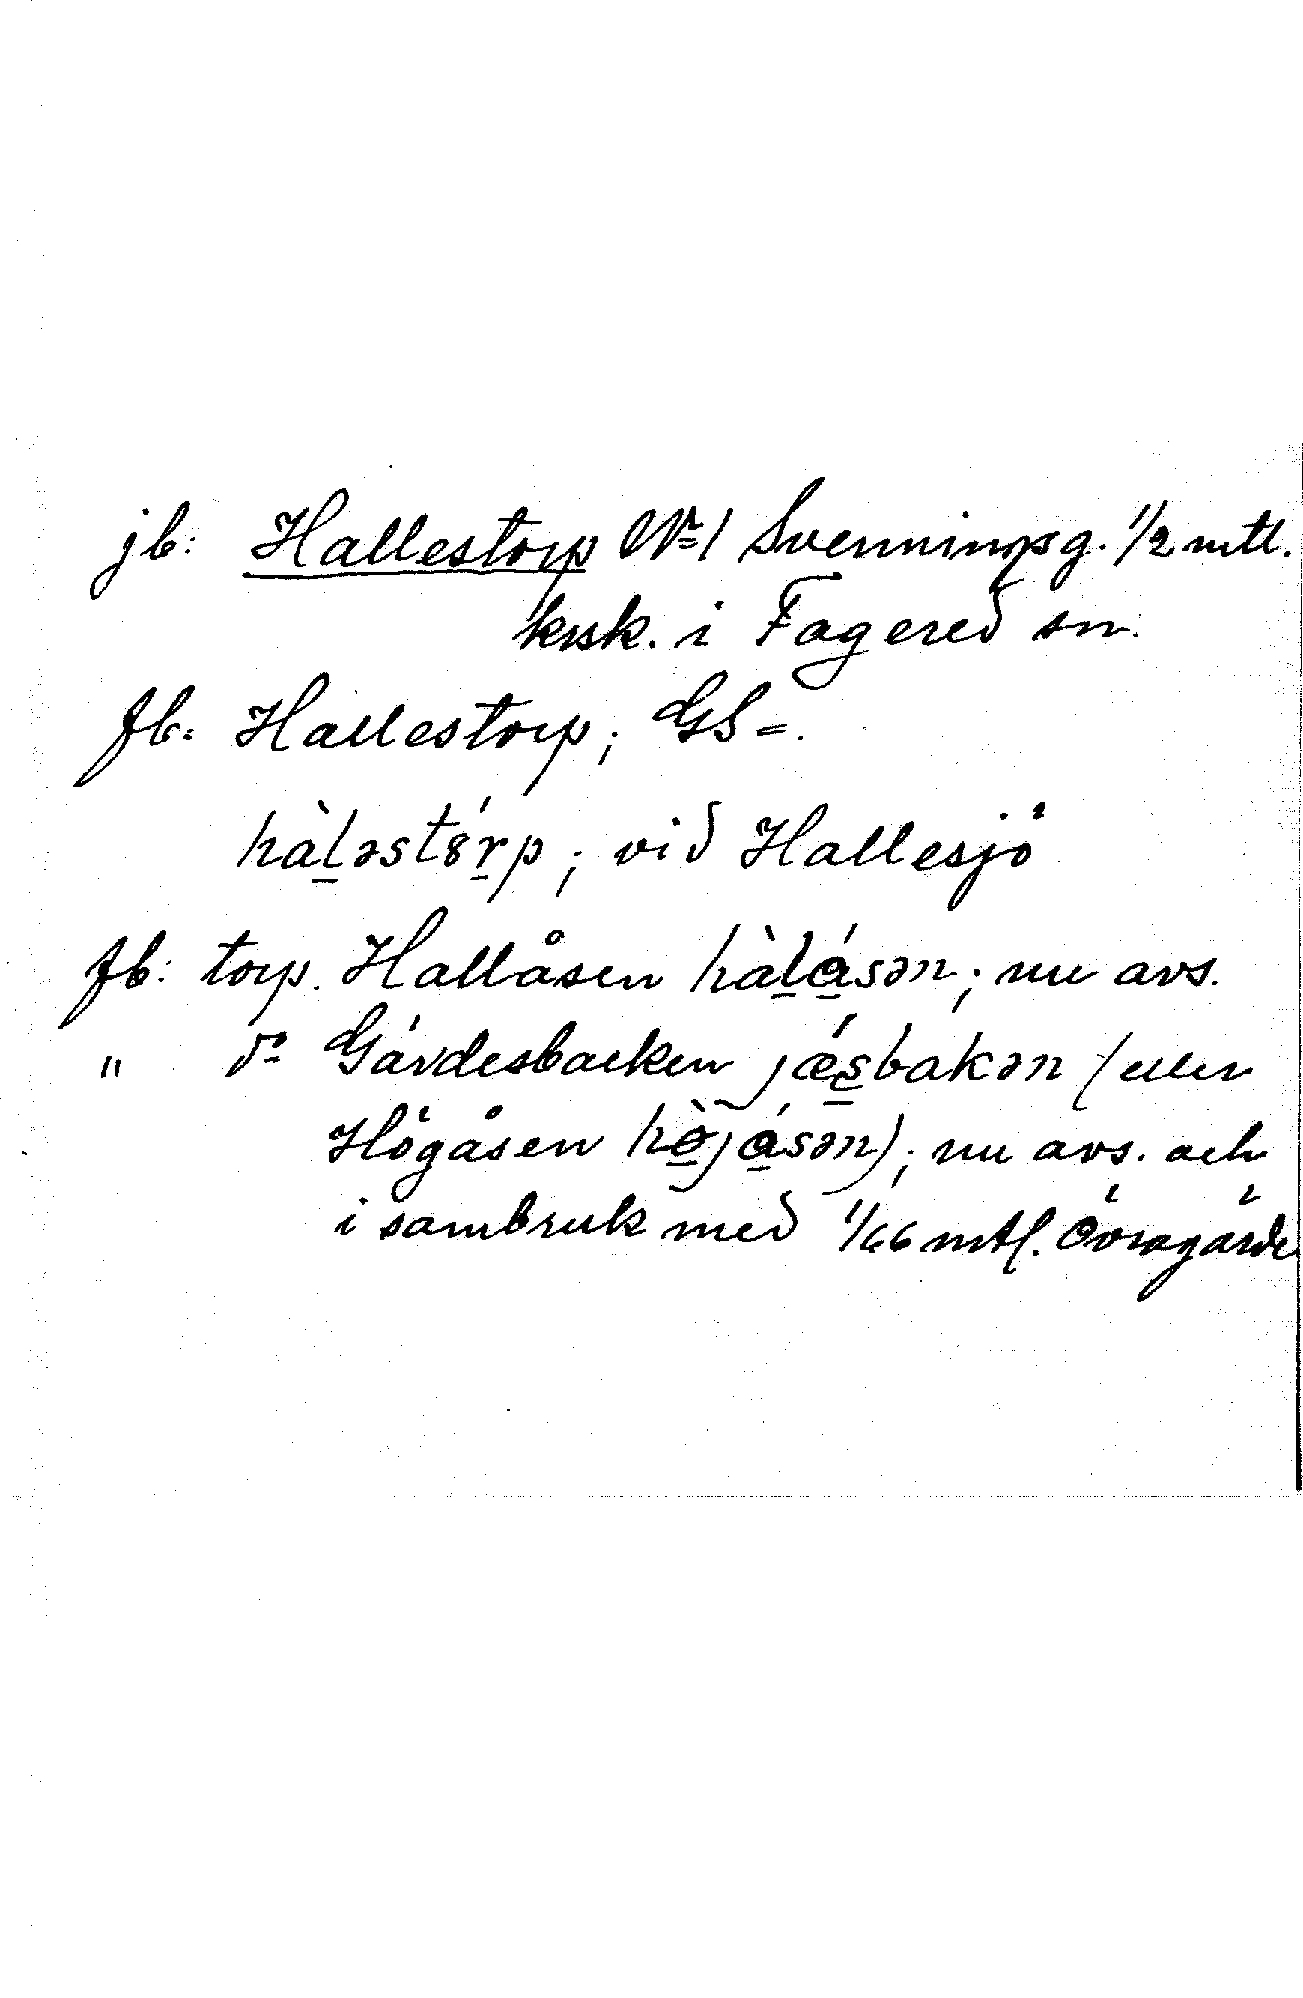 jb: Hallestorp No 1 Svenningsg. 1/2 mtl.
krsk. i Fagered sn.
fb: Hallestorp; GS =.
hàləstórp; vid Hallesjö
fb: torp. Hallåsen hàlásən; nu avs.
" do Gärdesbacken jǽsbakən (eller
Högåsen hòjásən); nu avs. och
i sambruk med 1/66 mtl. Övragärde